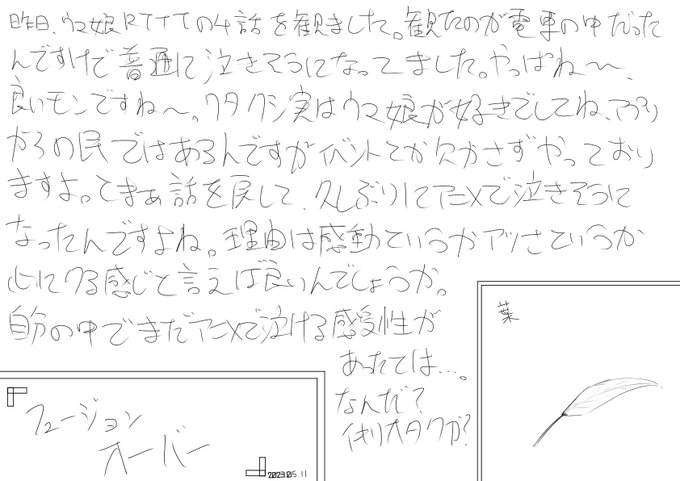 昨日、ウマ娘RTTTの4話を観ました。観たのが電車の中だった
んですけで普通に泣きそうになってました。やっぱね〜、
良いモンですね〜。ワタクシ実はウマ娘が好きでしてね、アプリ
がらの民ではあるんですがイベントとか欠かさずやっており
ますよ。とまぁ話を戻して、久しぶりにアニメで泣きそうに
なったんですよね。理由は感動というかアツさというか
心にクる感じと言えば良いんでしょうか。
自分の中でまだアニメで泣ける感受性が
あったとは…。
なんだ?
オタクか?
フュージョン
オーバー
2023.05.11
葉